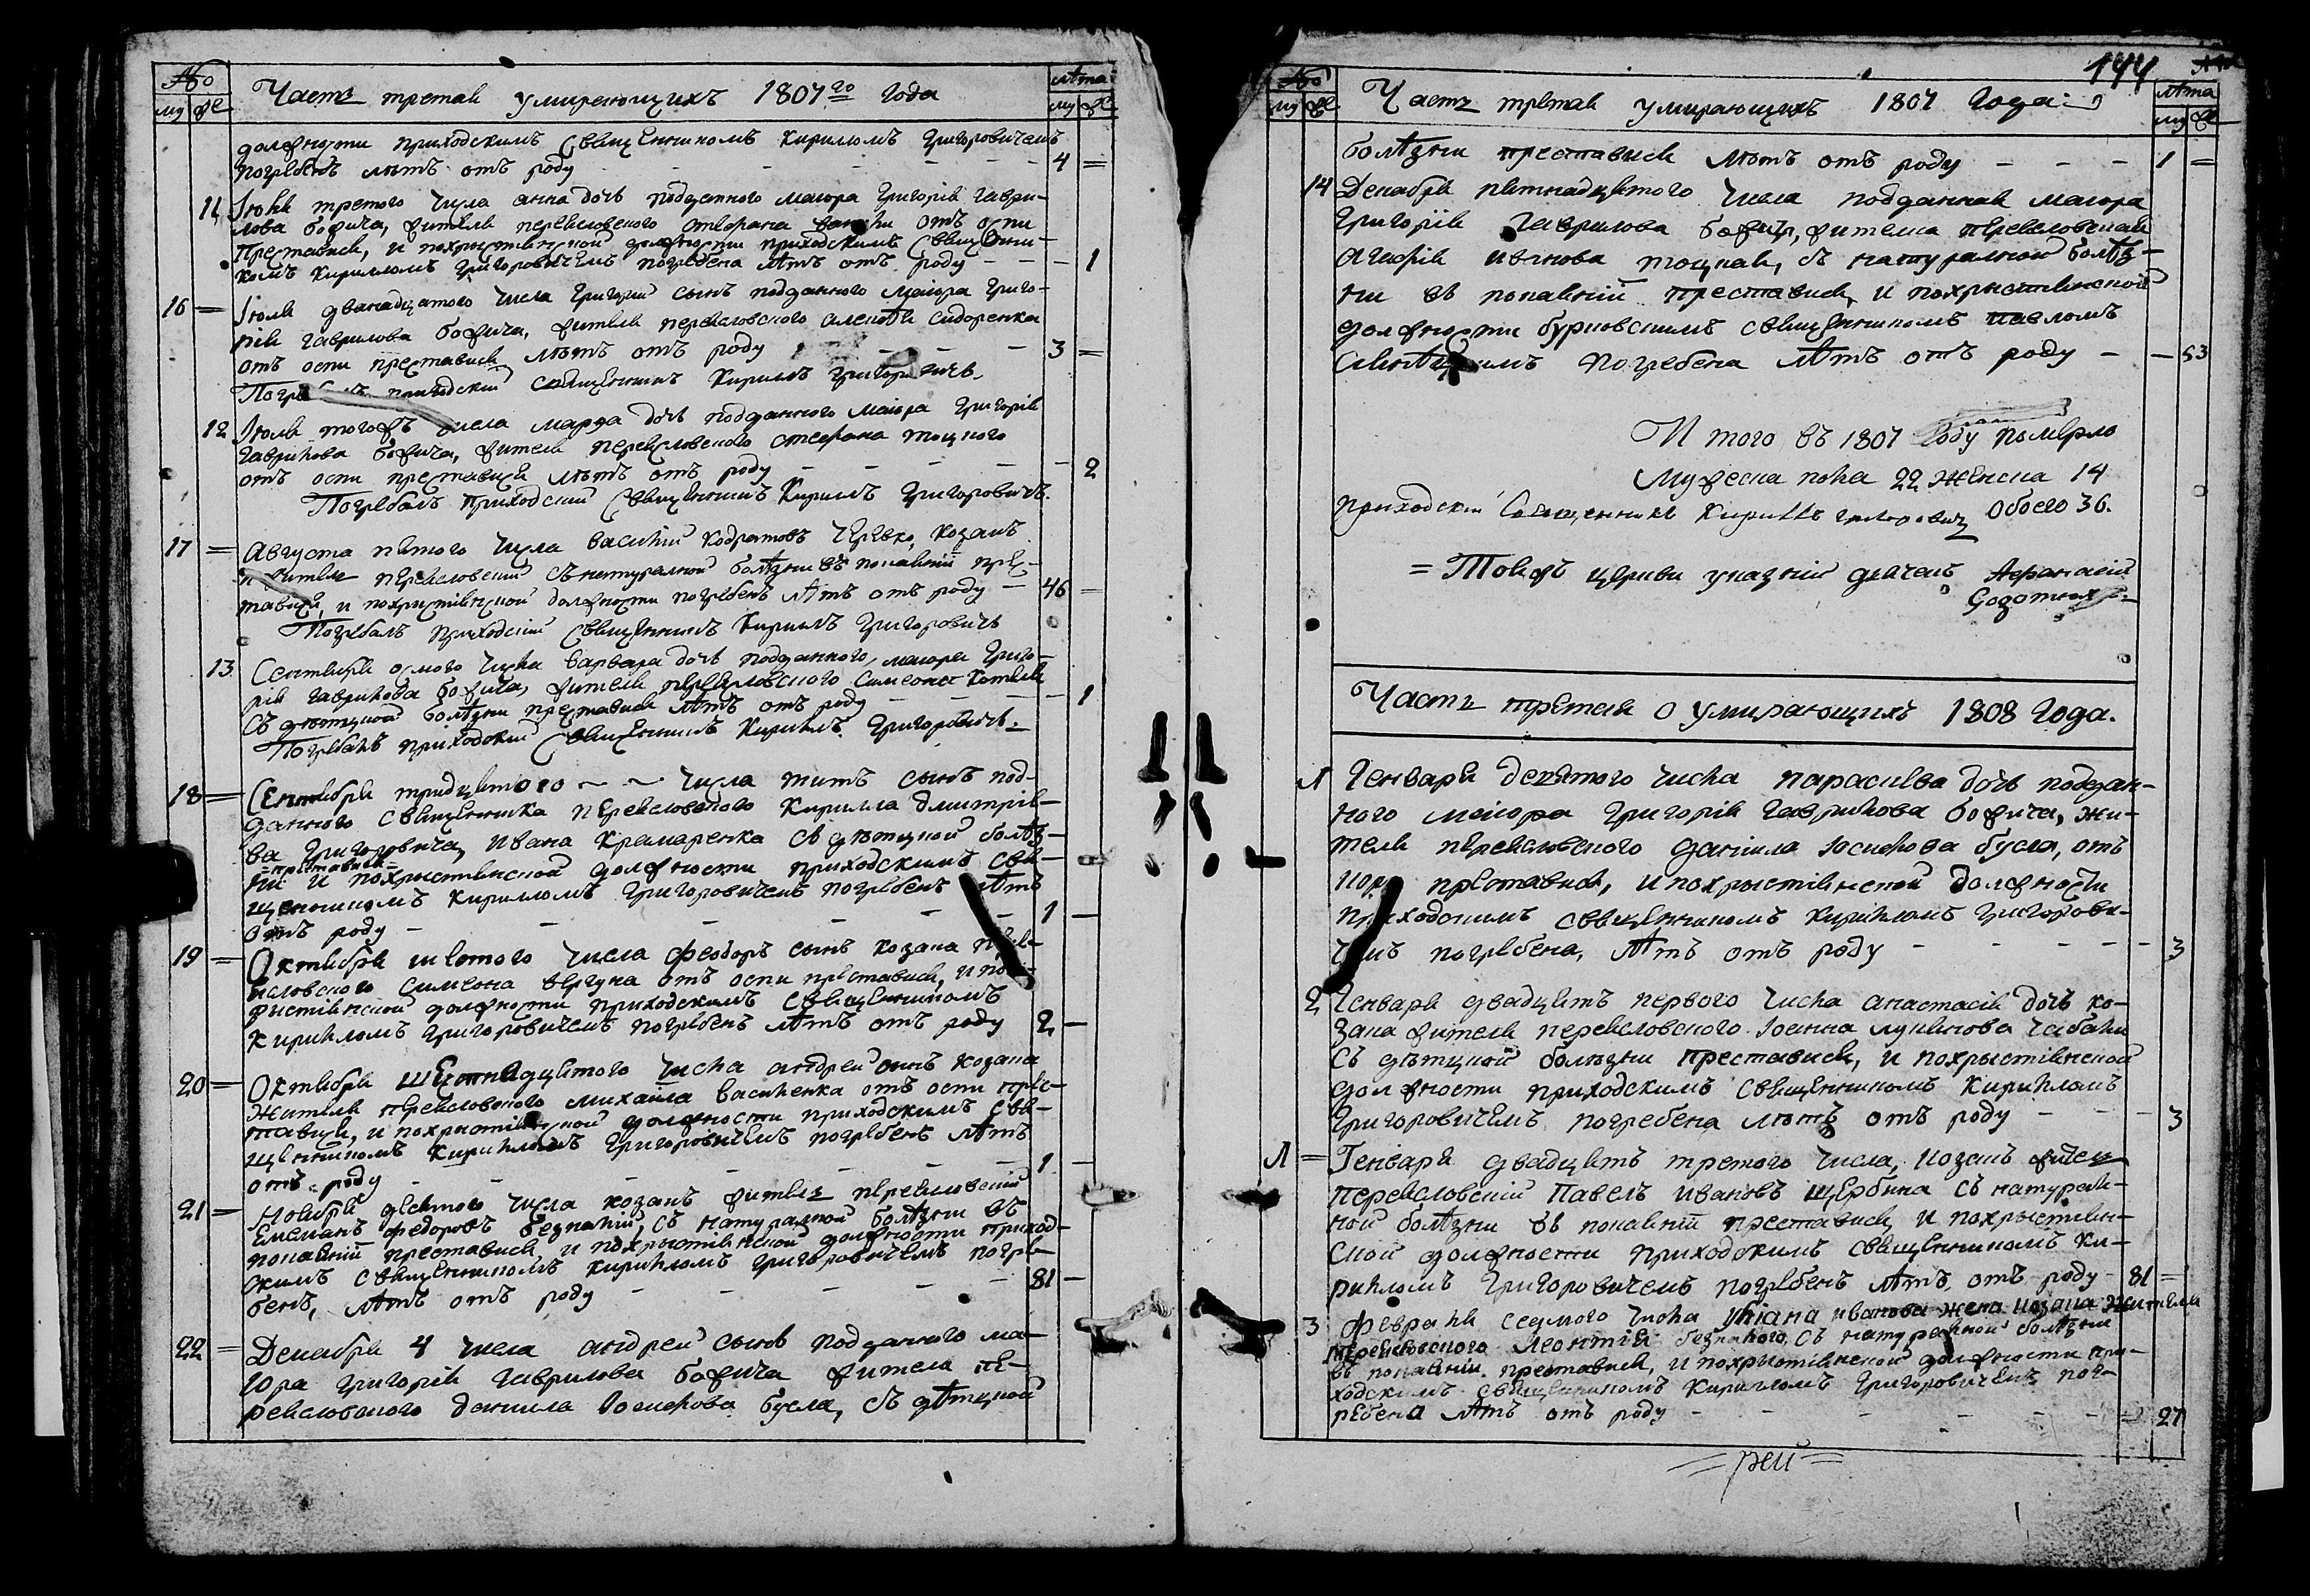 №
му же
Часть третая умирающихъ 1807го Года
лѣта
му же
должности приходскимъ священникомъ Кириломъ Григоровичемъ
погребенъ лѣтъ отъ роду 4 =
11 Іюня третого числа анна дочь подданного маіора Григорія Гаври-
лова божича, жителя переясловского отъ оспи
преставися, и похрыстіянской должности приходскимъ священни-
комъ Кириломъ Григоровичемъ погребена лѣтъ отъ роду - - - 1
16 = Іюля дванадцатого числа Григорій сынъ подданного маіора Григо-
рія Гаврилова божича, жителя переясловского алексѣя сидоренка
отъ оспи преставися лѣтъ отъ роду - - - 3 =
приходскій священникъ Кирилъ Григоровичъ.
12 Іюля тогожъ числа марѳа дочь подданного маіора Григорія
Гаврилова божича, жителя переясловского стефана тоцкого
отъ оспи преставися лѣтъ отъ роду - - - - - 2
Погребалъ приходскій священникъ Кирилъ Григоровичъ.
17 = Августа пятого числа василій кодратовъ черевко, козакъ
житель переясловскій съ натуралной болѣзни въ покаяніи прес-
тавися, и похристіянской должности погребенъ лѣтъ отъ роду - 46 =
Погребалъ приходскій священникъ Кирилъ Григоровичъ
13 Сентября осмого числа варвара дочь подданного, маіора Григо-
рія гаврилова божича, жителя переясловского симеона котляя
съ дѣтцкой болѣзни преставися лѣтъ отъ роду - - - - 1
Погребалъ приходскій священникъ Кирилъ Григоровичъ.
18 = Сентября тридцятого ~ ~ числа титъ сынъ под-
данного священника переясловского Кирилла дмитрів-
ва Григоровича, ивана Крамаренка съ дѣтцкой болѣз-
преставися
ни и похрыстіянской должности приходскимъ свя-
щенникомъ Кириломъ Григоровичемъ погребенъ лѣтъ
отъ роду - - - - - 1 -
19 = Октября шестого числа феодоръ сынъ козака
ясловского симеона вергуна отъ оспи преставися,
рыстіянской должности приходскимъ священникомъ
Кириломъ Григоровичемъ погребенъ лѣтъ отъ роду 2 -
20 = Октября шестнадцятого числа андрей синъ козака
жителя переясловского михаила василенка отъ оспи прес-
тавися, и похрыстіянской должности приходскимъ свя-
щенникомъ Кириломъ Григоровичемъ погребенъ лѣтъ
отъ роду - - - - - 1 -
21 = Ноября десятого числа козакъ житель переясловскій
Емелианъ федоровъ безпалій, съ натуралной болѣзни въ
покаяніи преставися, и похрыстіянской должности приход-
скимъ священникомъ Кириломъ Григоровичемъ погре-
бенъ, лѣтъ отъ роду - - - - - 81 -
22 = Декабря 4 числа андрей сынъ подданного ма-
іора Григорія Гаврилова божича жителя пе-
реясловского даниила Іосифова бусла, съ дѣтцкой
144
№
му же
Часть третая умирающихъ 1807 Года
лѣта
му же
болѣзни преставися лѣтъ отъ роду - - - 1 =
14 Декабря пятнадцятого числа подданная маіора
Григорія Гаврилова божича, жителка переясловская
агафія иванова тоцкая, съ натуралной болѣз-
ни въ покаяніи преставися, и похрыстіянской
должности бурковскимъ священникомъ павломъ
погребена лѣтъ отъ роду - - 53
И того въ 1807 Году померло
Мужеска пола 22 Женска 14
Обоего 36.
Приходскій Священникъ Кириллъ Григоровичъ
= Тоежъ церкви указній дячекъ Афанасій
Часть третая о умирающихъ 1808 Года.
1 Генваря девятого числа параскева дочь поддан-
ного маіора Григорія Гаврилова божича, жи-
теля переясловского даніила іосифова бусла, отъ
преставися, и похрыстіянской должности
приходскимъ священникомъ Кириломъ Григорови-
чемъ погребена, лѣтъ отъ роду - - - - - 3
2 Генваря двадцять первого числа анастасія дочь ко-
зака жителя переясловского Іоанна лукянова чабана
съ дѣтцкой болѣзни преставися, и похрыстіянской
должности приходскимъ священникомъ Кириломъ
Григоровичемъ погребена лѣтъ отъ роду - - - 3
1 = Генваря двадцять третого числа, козакъ житель
переясловскій Павелъ ивановъ щербина съ натурал-
ной болѣзни въ покаяніи преставися, и похрыстіян-
ской должности приходскимъ священникомъ Ки-
риломъ Григоровичемъ погребенъ лѣтъ отъ роду - 81 =
3 Февраля седмого числа уліана иванова жена козака жителя
переясловского леонтія безпалого, съ натуралной болѣзни
въ покаяніи преставися, и похрыстіянской должности при-
ходскимъ священникомъ Кириломъ Григоровичемъ пог-
ребена лѣтъ отъ роду - - - - - = 27